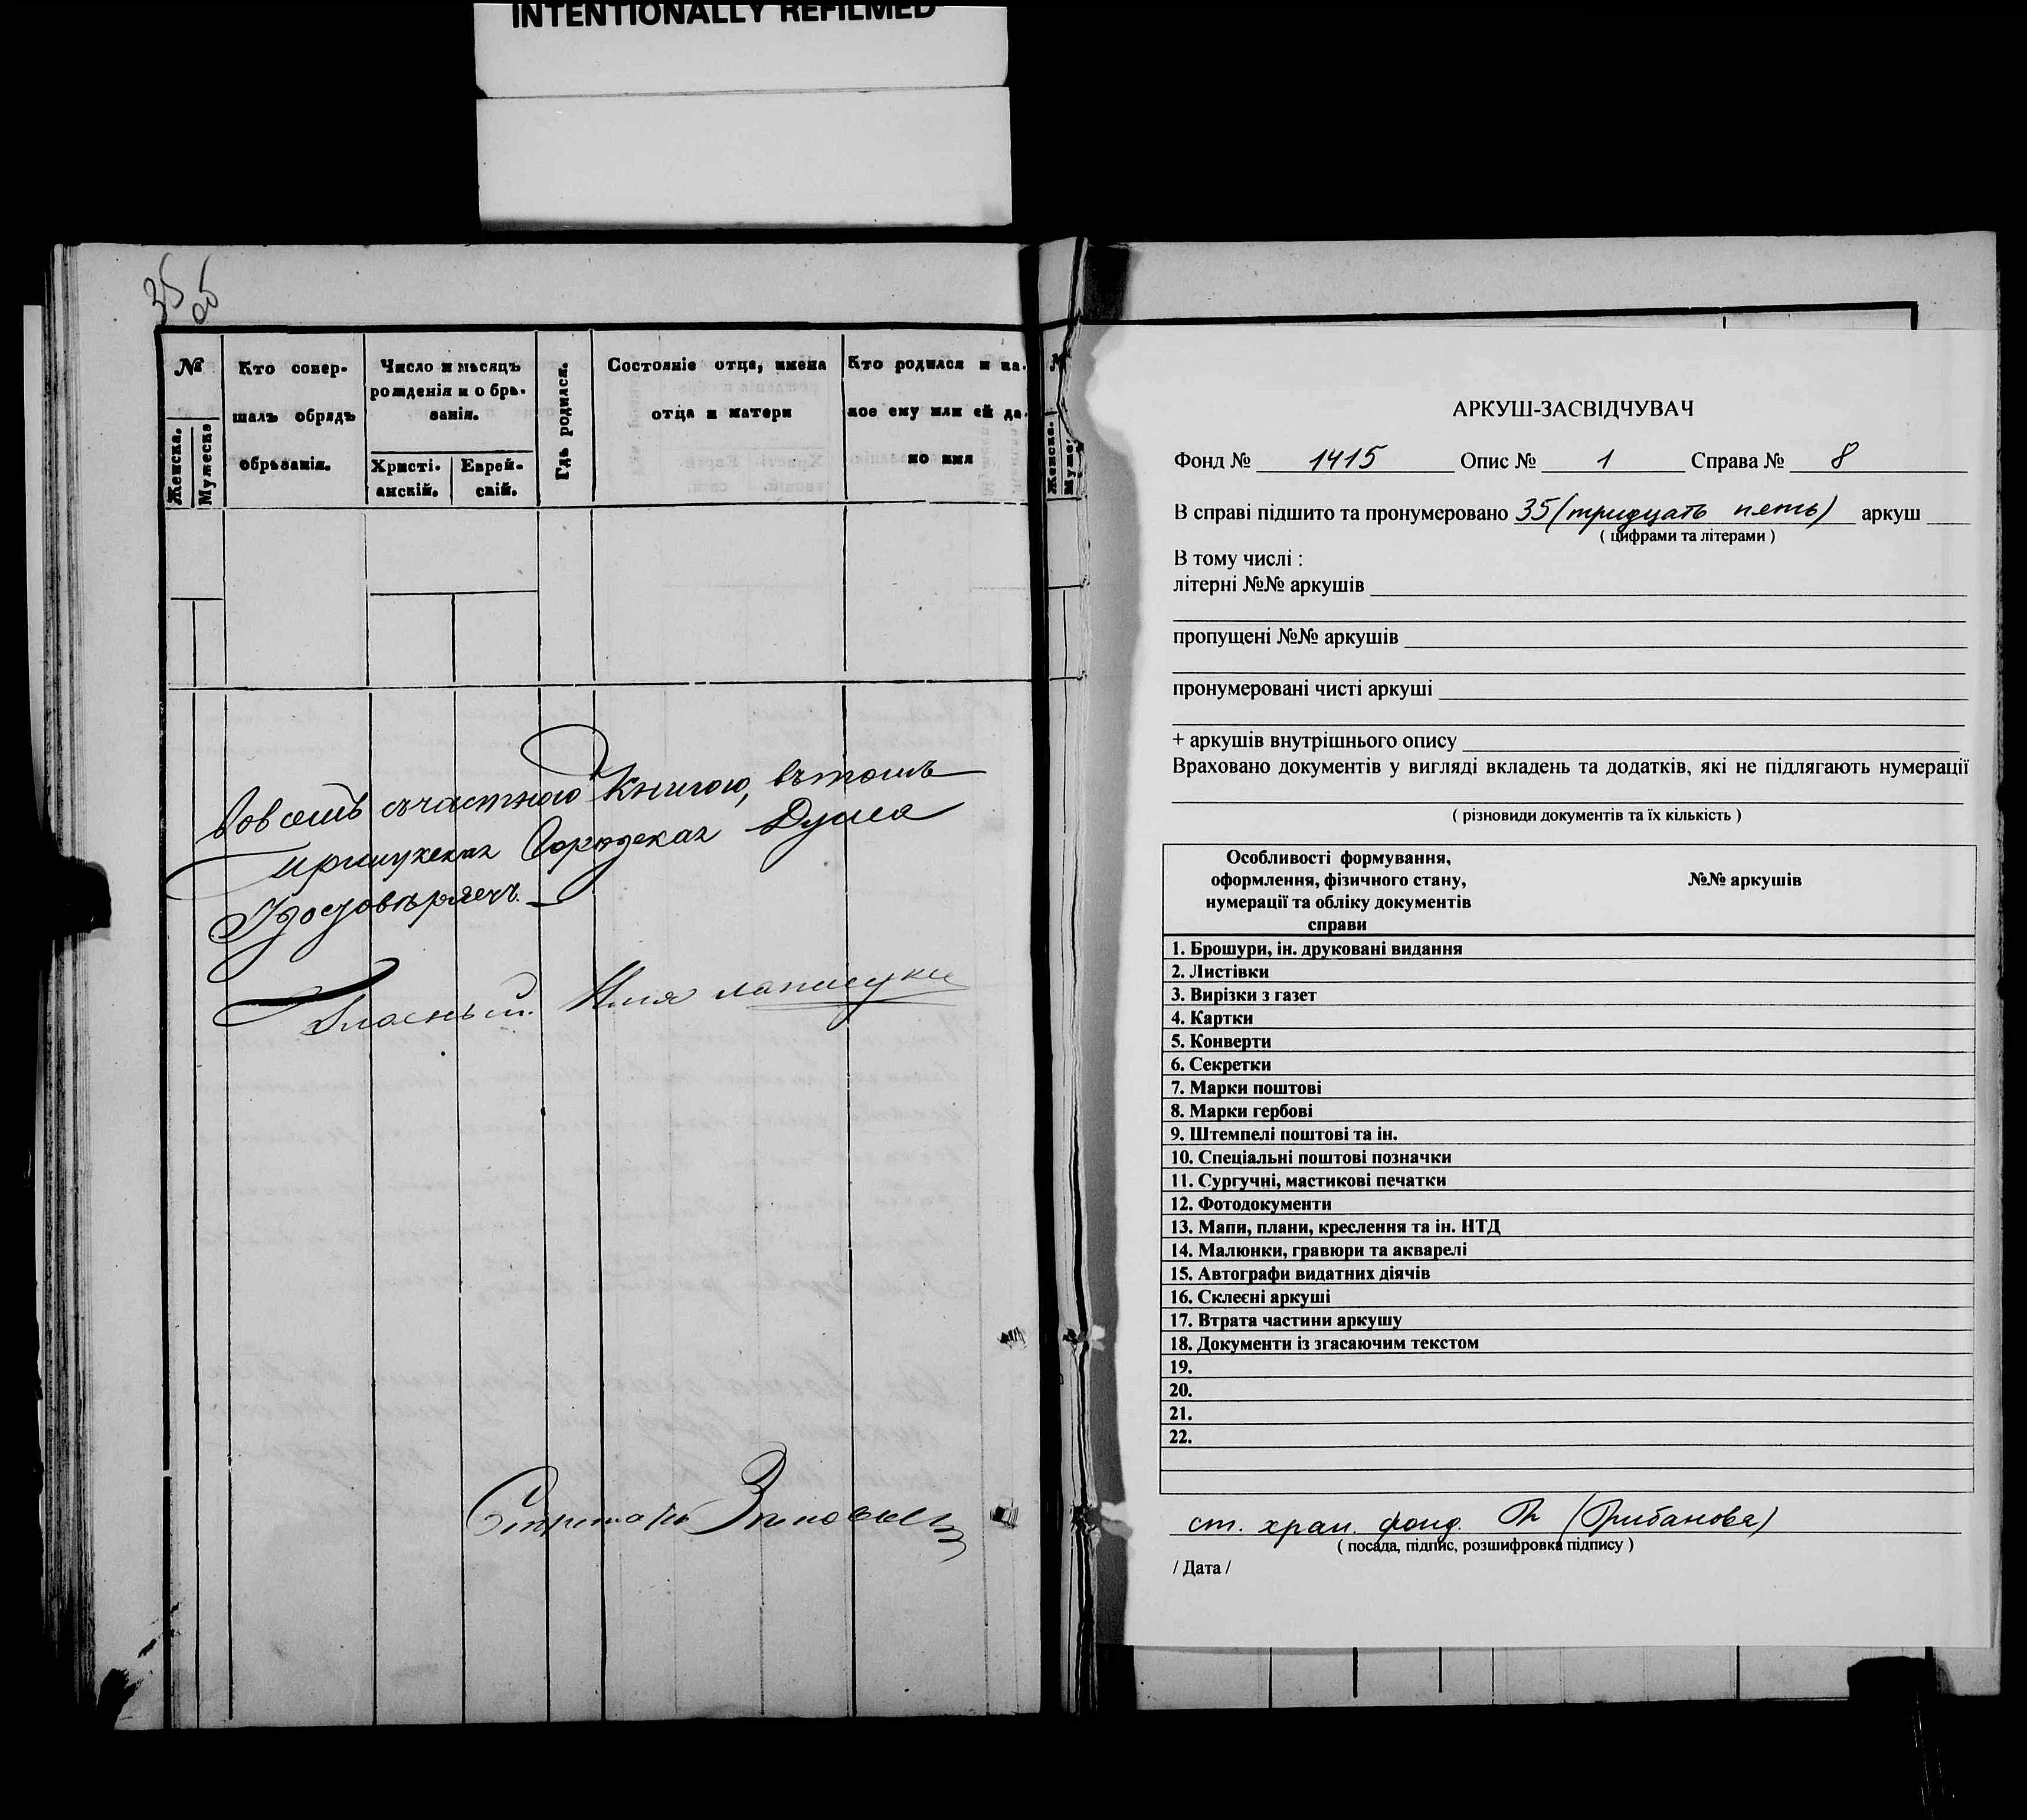 INTENTIONALLY REFILMED
35 об
№
Женска.
Мужеска
Кто совер-
шалъ обрядъ
обрѣзанія.
Число и мѣсяцъ
рожденія и обрѣ-
занія.
Христі-
анскій.
Еврей-
скій.
Гдѣ родился.
Состояніе отца, имена
отца и матери
Кто родился и ка-
кое ему или ей да-
но имя
книгою, въ томъ
Городская Дума
Гласный Илья
Секретарь
№
Женска.
Муже
АРКУШ-ЗАСВІДЧУВАЧ
Фонд № 1415 Опис № 1 Справа № 8
В справі підшито та пронумеровано 35 (тридцать пять) аркуш
( цифрами та літерами )
В тому числі :
літерні №№ аркушів
пропущені №№ аркушів
пронумеровані чисті аркуші
+ аркушів внутрішнього опису
Враховано документів у вигляді вкладень та додатків, які не підлягають нумерації
( різновиди документів та їх кількість )
Особливості формування,
оформлення, фізичного стану,
нумерації та обліку документів
справи
№№ аркушів
1. Брошури, ін. друковані видання
2. Листівки
3. Вирізки з газет
4. Картки
5. Конверти
6. Секретки
7. Марки поштові
8. Марки гербові
9. Штемпелі поштові та ін.
10. Спеціальні поштові позначки
11. Сургучні, мастикові печатки
12. Фотодокументи
13. Мапи, плани, креслення та ін. НТД
14. Малюнки, гравюри та акварелі
15. Автографи видатних діячів
16. Склеєні аркуші
17. Втрата частини аркушу
18. Документи із згасаючим текстом
19.
20.
21.
22.
ст. хран. фонд. (Грибанова)
( посада, підпис, розшифровка підпису )
/ Дата /